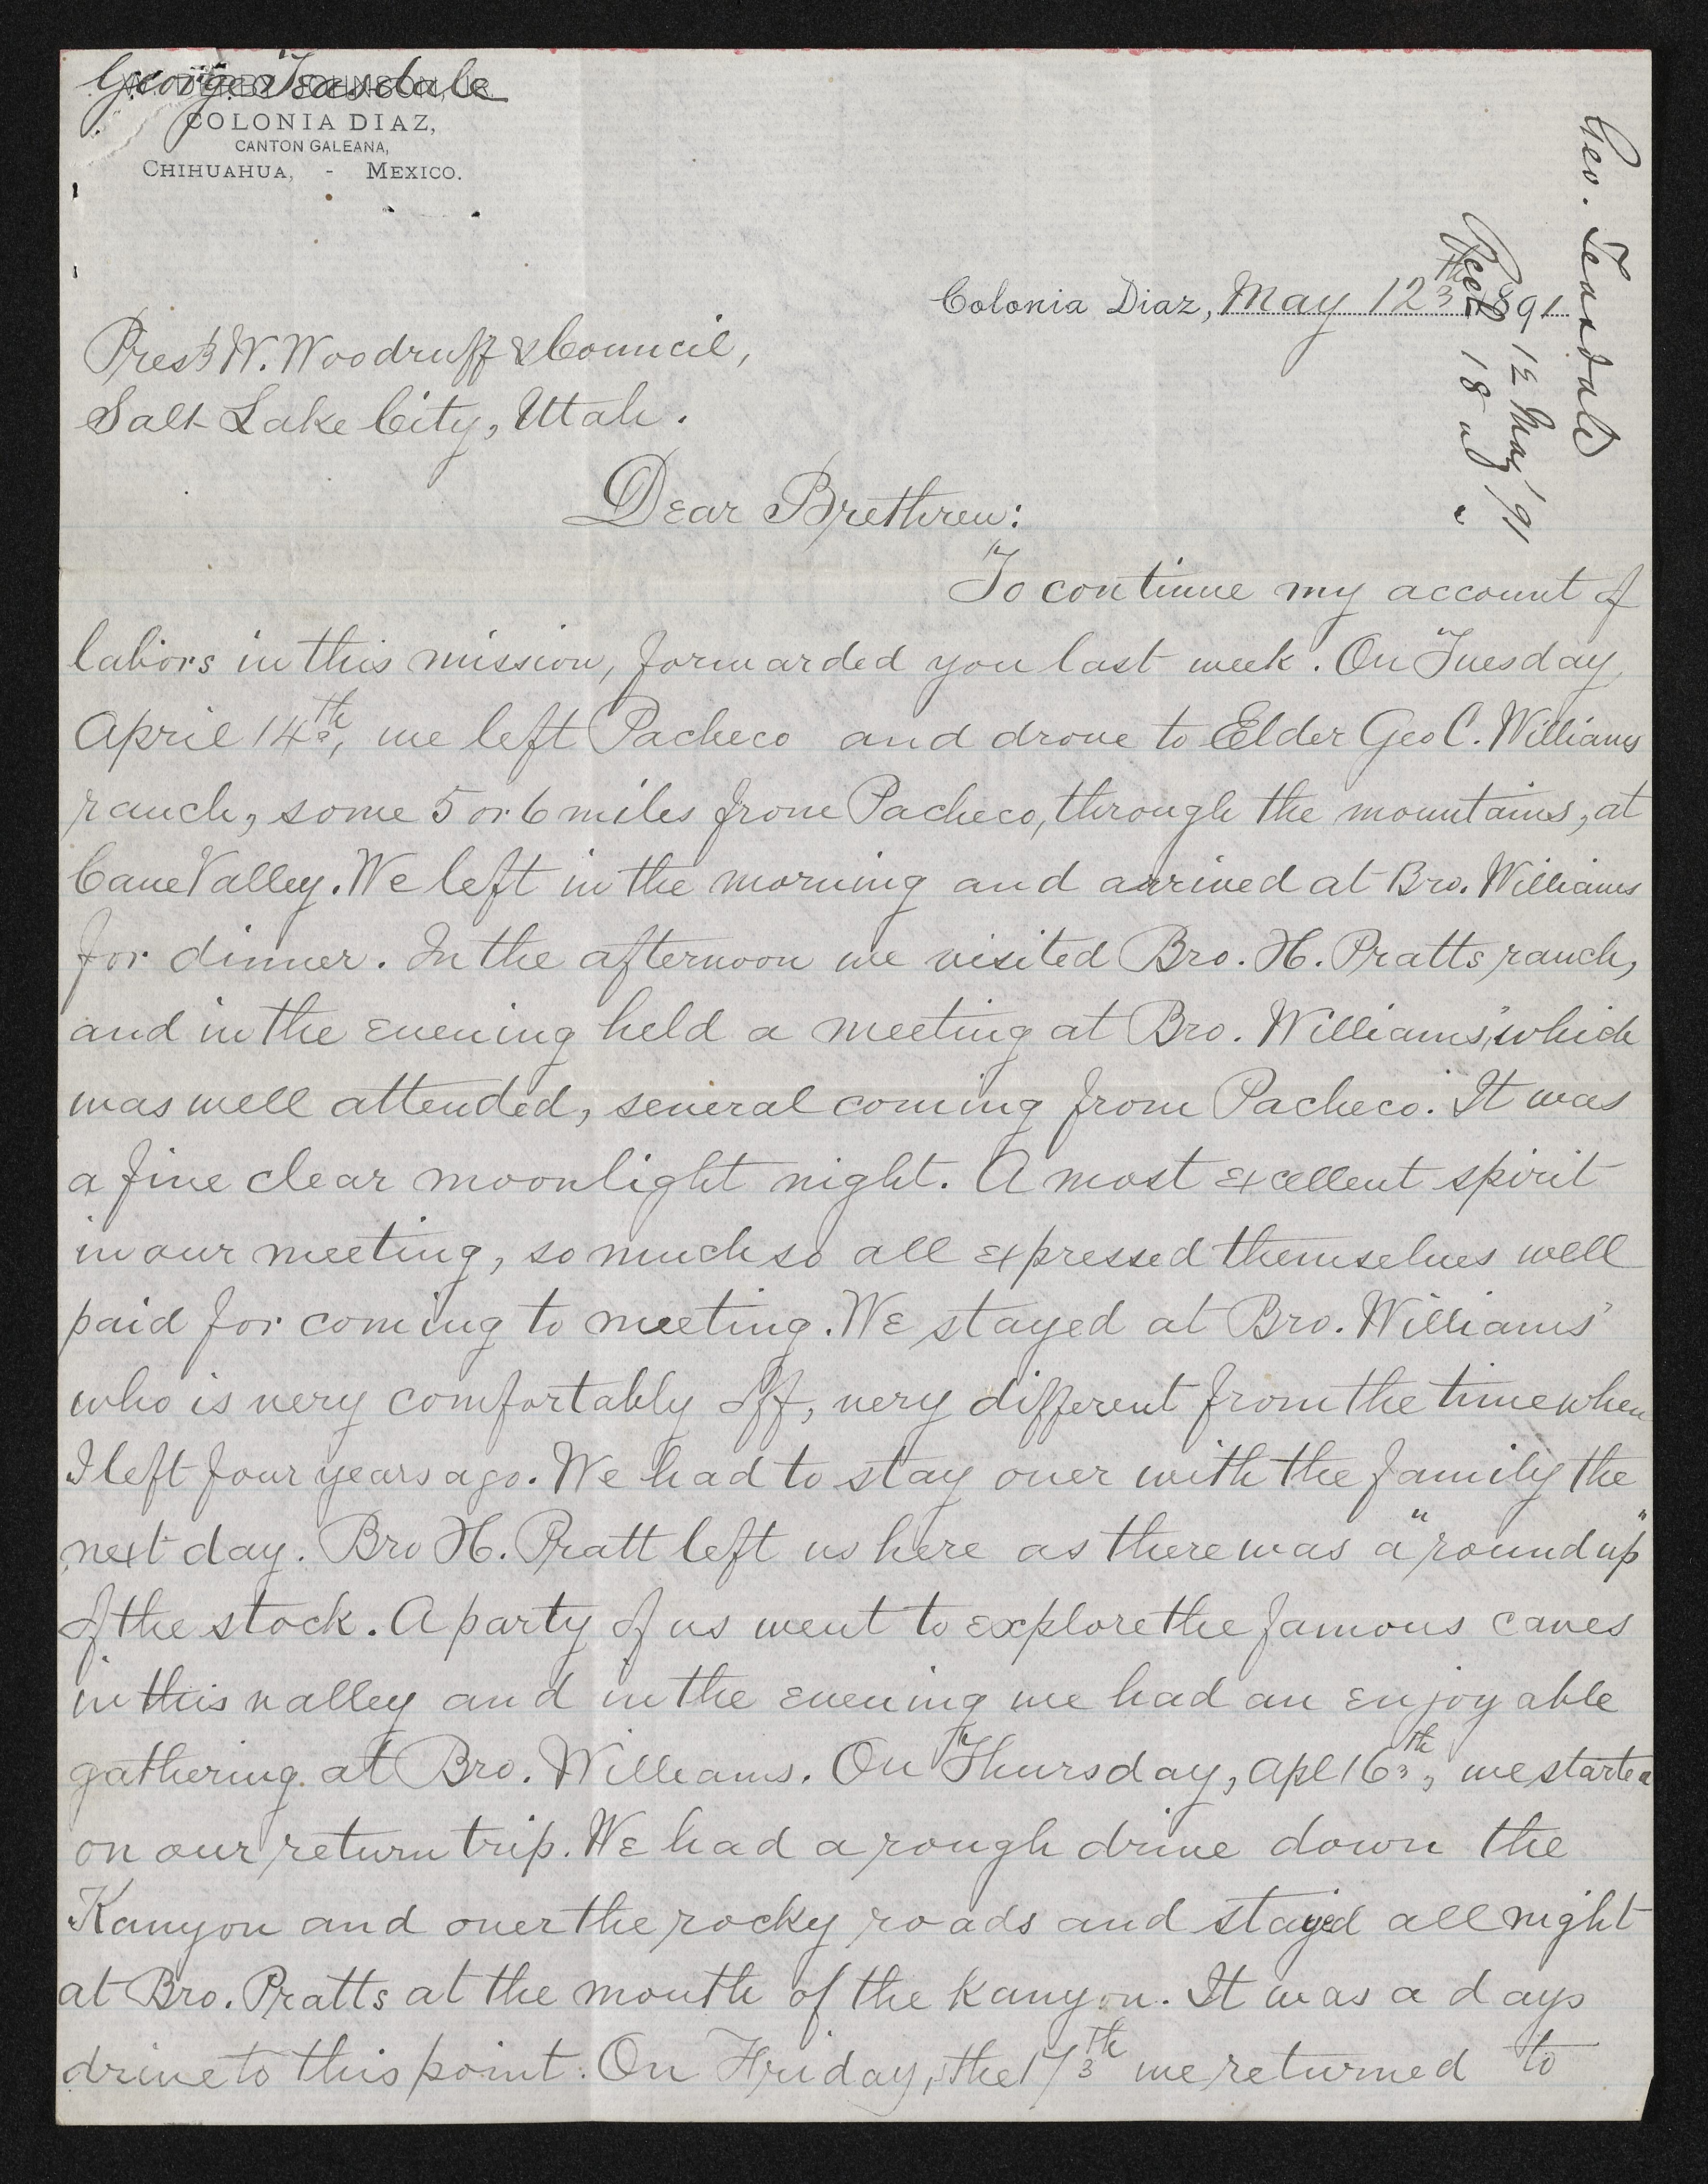 George Teasdale
COLONIA DIAZ,
CANTON GALEANA,
CHIHUAHUA, - MEXICO.
Geo. Teasdale
12 May '91
Recd 18 " "
Colonia Diaz, May 12th 1891
Prest W. Woodruff & Council,
Salt Lake City, Utah.
Dear Brethren:
To continue my account of
labors in this mission, forwarded you last week. On Tuesday
April 14th, we left Pacheco and drove to Elder Geo C. Williams
ranch, some 5 or 6 miles from Pacheco, through the mountains, at
Cave Valley. We left in the morning and arrived at Bro. Williams
for dinner. In the afternoon we visited Bro. H. Pratts ranch,
and in the evening held a meeting at Bro. Williams', which
was well attended, several coming from Pacheco. It was
a fine clear moonlight night. A most excellent spirit
in our meeting, so much so all expressed themselves well
paid for coming to meeting. We stayed at Bro. Williams'
who is very comfortably off, very different from the time when
I left four years ago. We had to stay over with the family the
next day. Bro H. Pratt left us here as there was a "round up"
of the stock. A party of us went to explore the famous caves
in this valley and in the evening we had an enjoyable
gathering at Bro. Williams. On Thursday, Apl 16th, we started
on our return trip. We had a rough drive down the
Kanyon and over the rocky roads and stayed all night
at Bro. Pratts at the mouth of the Kanyon. It was a days
drive to this point. On Friday, the 17th we returned to